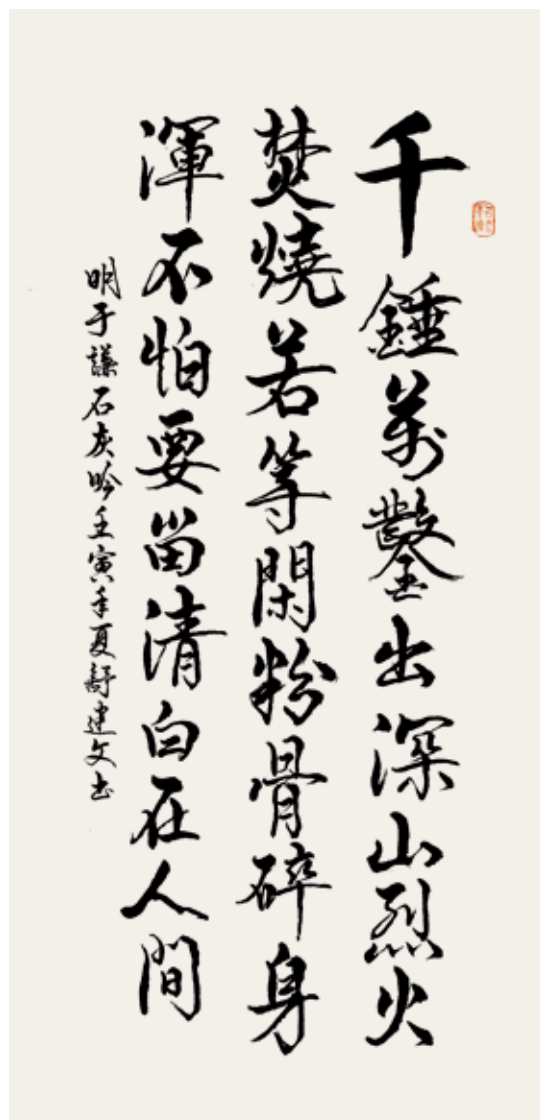 千錘萬鑿出深山烈火
焚燒若等閑粉骨碎身
渾不怕要留清白在人間
明于謙石灰吟壬寅年夏舒建文书